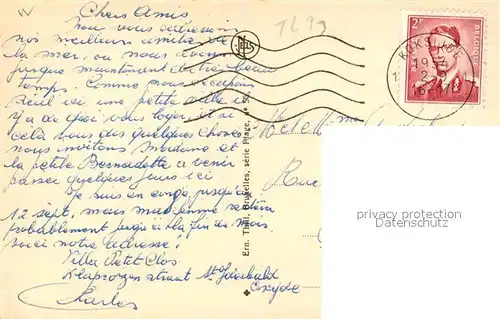 Chers Amis
nous vous adressons
nos meilleures amitiés de
la mer, ou nous avons
jusque maintenant de très beau
temps. Comme nous occupons
seuil ici une petite villa et
y a de quoi vous loger et si
cela vous dis quelques choses
nous invitons Madame et
la petite Bernadette a venir
passer quelques jours ici
Je suis en congé jusqu'au
12 sept, mais ma femme restera
probablement jusqu'a la fin du mois.
voici notre adresse!
Villa Petit Clos
Klaprozenstraat St Idesbald
Coxyde
Charles
Ern. Thill, Bruxelles, série Plage,
2F
BELGIQUE
KOKSIJDE
19
2
16-17
Mr et Me
Rue
privacy protection
privacy protection